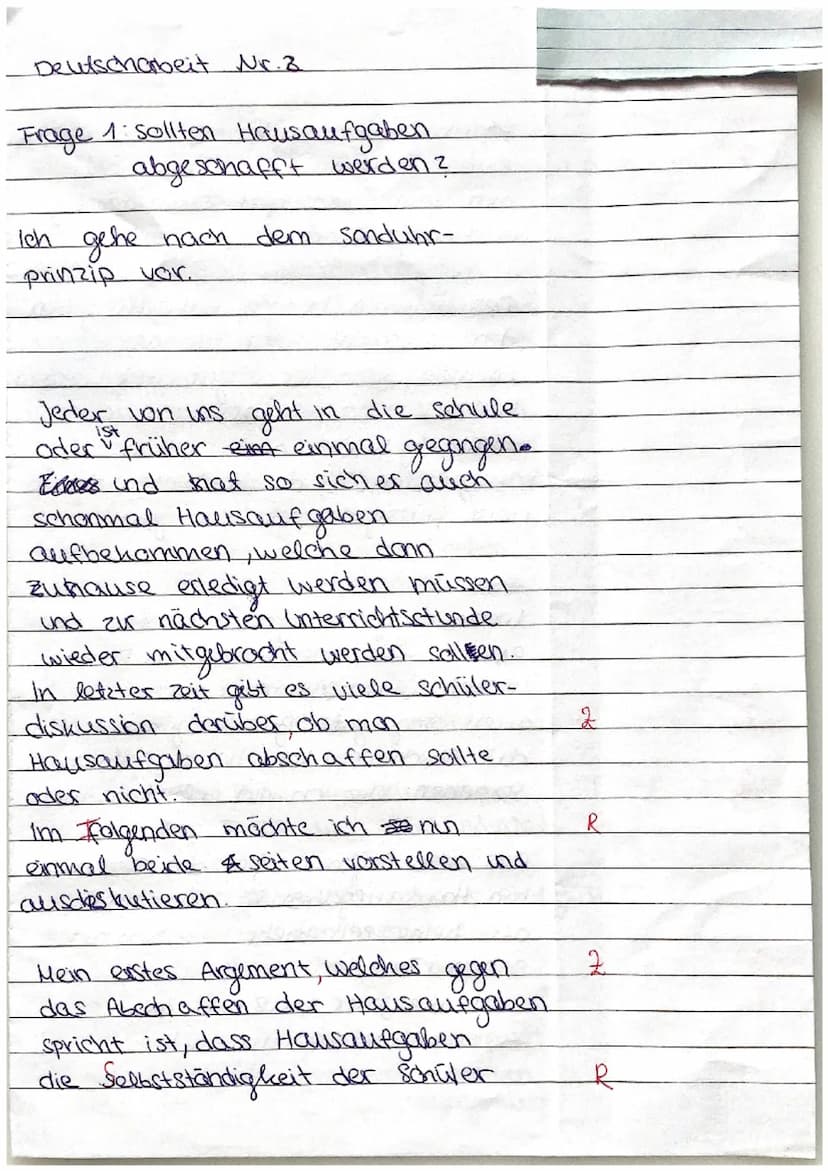 Deutscharbeit Nr. 3
Frage 1: Sollten Hausaufgaben
abgeschafft werden?
Ich gehe nach dem Sanduhr-
prinzip vor.
Jeder von uns geht in die Schule
ist
oder früher einmal gegangen.
und hat so sicher auch
schonmal Hausaufgaben
aufbekommen, welche dann
zuhause erledigt werden müssen
und zur nächsten Unterrichtsstunde
wieder mitgebracht werden sollen.
In letzter Zeit gibt es viele Schüler-
diskussion darüber, ob man Z
Hausaufgaben abschaffen sollte
oder nicht.
Im Folgenden möchte ich nun R
einmal beide Seiten vorstellen und
ausdiskutieren.
Mein erstes Argement, welches gegen Z
das Abschaffen der Hausaufgaben
spricht ist, dass Hausaufgaben
die Selbstständigkeit der Schüler R